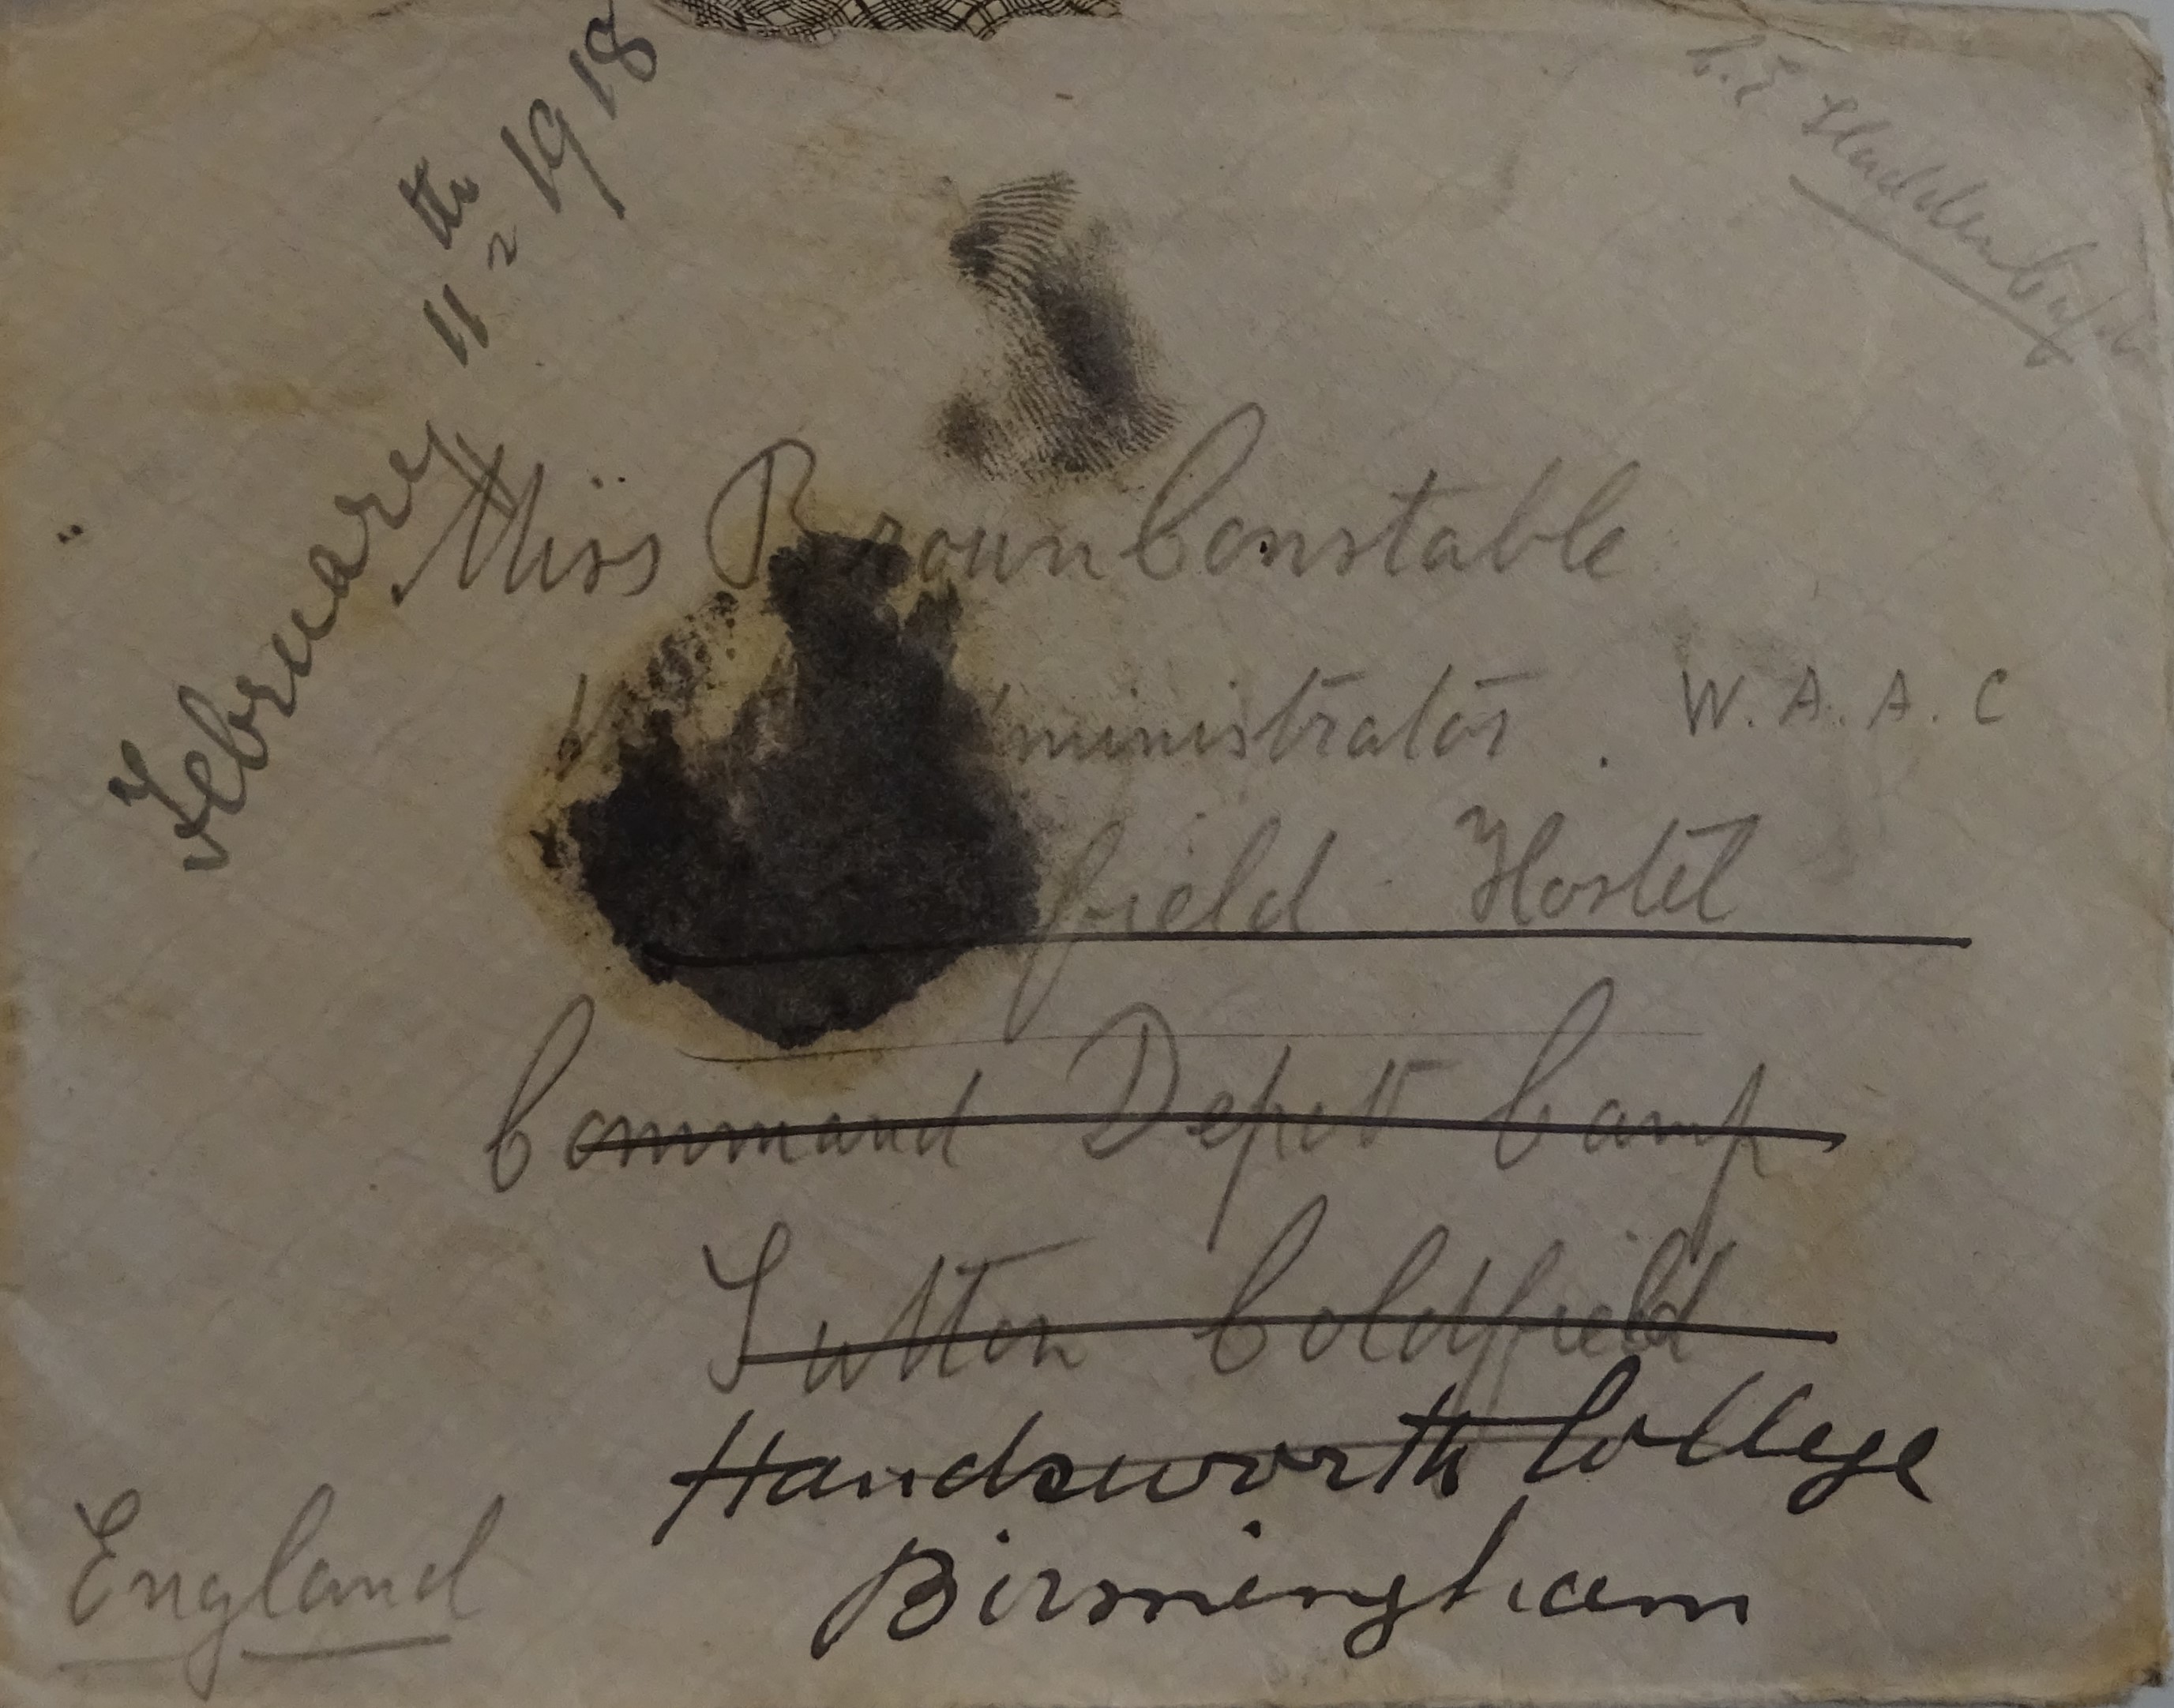 February 11th 1918
Miss Brown Constable
ministrator. W. A. A. C
field Hostel
Command Depôt Camp
Sutton Coldfield
Handsworth College
Birmingham
England